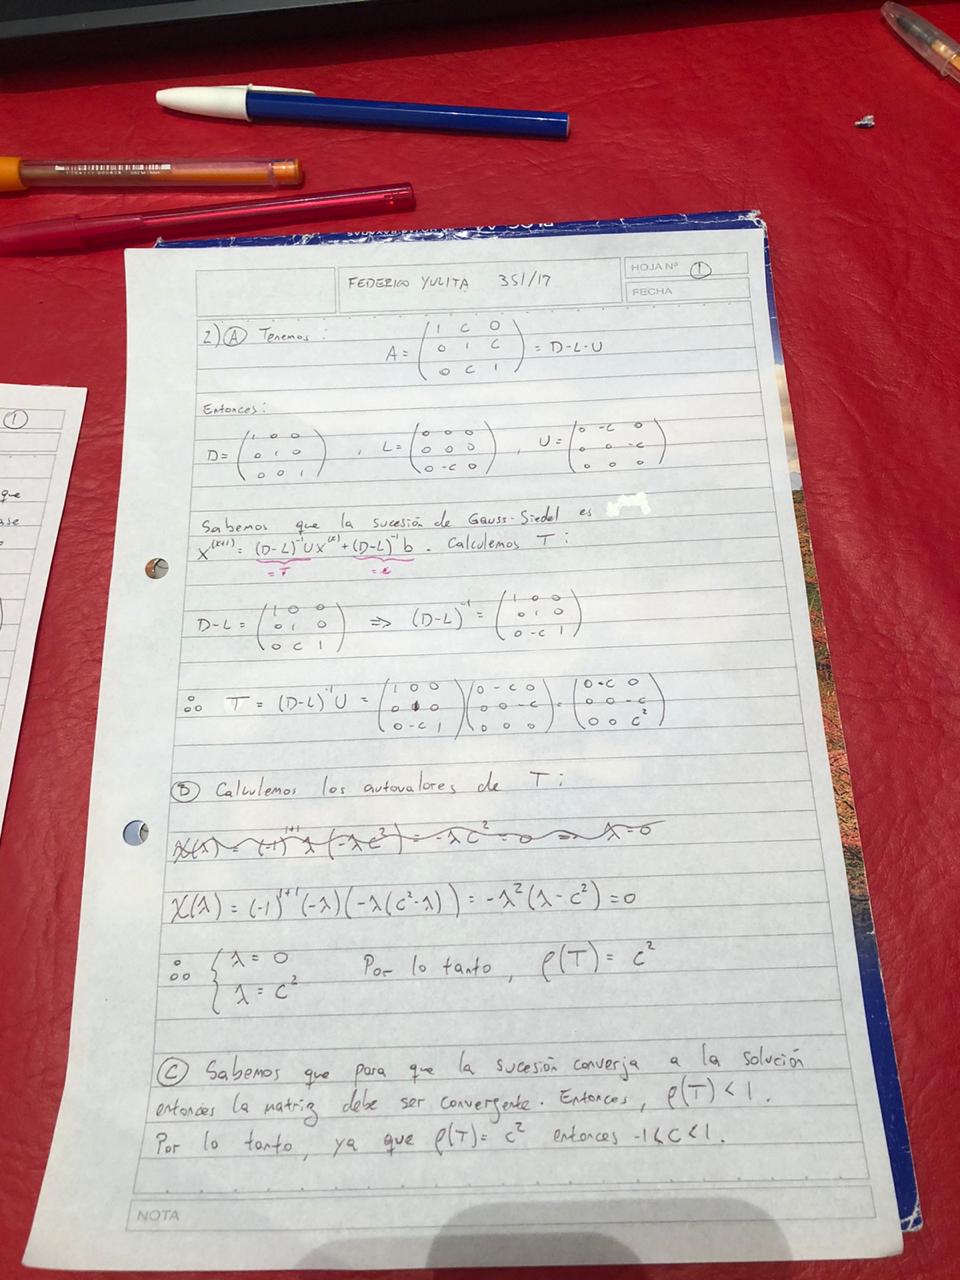 FEDERICO YULITA 351/17
HOJA Nº 1
FECHA
2) (A) Tenemos:
A = ( 1 c 0 ; 0 1 c ; 0 c 1 ) = D-L-U
Entonces:
D = ( 1 0 0 ; 0 1 0 ; 0 0 1 ) , L = ( 0 0 0 ; 0 0 0 ; 0 -c 0 ) , U = ( 0 -c 0 ; 0 0 -c ; 0 0 0 )
Sabemos que la sucesión de Gauss-Siedel es
x^(k+1) = (D-L)^-1 U x^(k) + (D-L)^-1 b . Calculemos T:
= T = c
D-L = ( 1 0 0 ; 0 1 0 ; 0 c 1 ) ⇒ (D-L)^-1 = ( 1 0 0 ; 0 1 0 ; 0 -c 1 )
∴ T = (D-L)^-1 U = ( 1 0 0 ; 0 1 0 ; 0 -c 1 ) ( 0 -c 0 ; 0 0 -c ; 0 0 0 ) = ( 0 -c 0 ; 0 0 -c ; 0 0 c² )
(B) Calculemos los autovalores de T:
χ(λ) = (-1)^1+1 λ (-λ c²) = -λ c² = 0 ⇒ λ = 0
χ(λ) = (-1)^1+1 (-λ) (-λ(c²-λ)) = -λ² (λ - c²) = 0
∴ { λ = 0 Por lo tanto, ρ(T) = c²
λ = c²
(C) Sabemos que para que la sucesión converja a la solución
entonces la matriz debe ser convergente. Entonces, ρ(T) < 1.
Por lo tanto, ya que ρ(T) = c² entonces -1 < c < 1.
NOTA
1
que